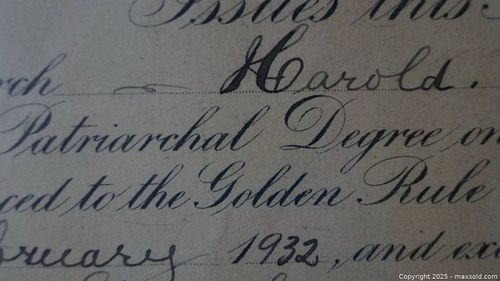 Issues this
rch Harold.
Patriarchal Degree on
ced to the Golden Rule
bruary 1932, and exe
Copyright 2025 - maxsold.com